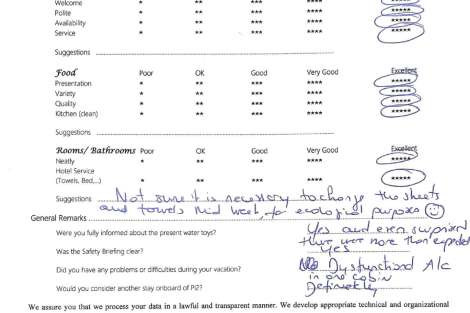 Welcome * ** *** **** *****
Polite * ** *** **** *****
Availability * ** *** **** *****
Service * ** *** **** *****
Suggestions
Food Poor OK Good Very Good Excellent
Presentation * ** *** **** *****
Variety * ** *** **** *****
Quality * ** *** **** *****
Kitchen (clean) * ** *** **** *****
Suggestions
Rooms/ Bathrooms Poor OK Good Very Good Excellent
Neatly * ** *** **** *****
Hotel Service
(Towels, Bed,...) * ** *** **** *****
Suggestions Not sure it is necessary to change the sheets
and towels mid week, for ecological purposes
General Remarks
Were you fully informed about the present water toys? Yes and even surprised
there were more than expected
Was the Safety Briefing clear? Yes
Did you have any problems or difficulties during your vacation? Dysfunctional A/c
in one cabin
Would you consider another stay onboard of PI2? Definitely
We assure you that we process your data in a lawful and transparent manner. We develop appropriate technical and organizational